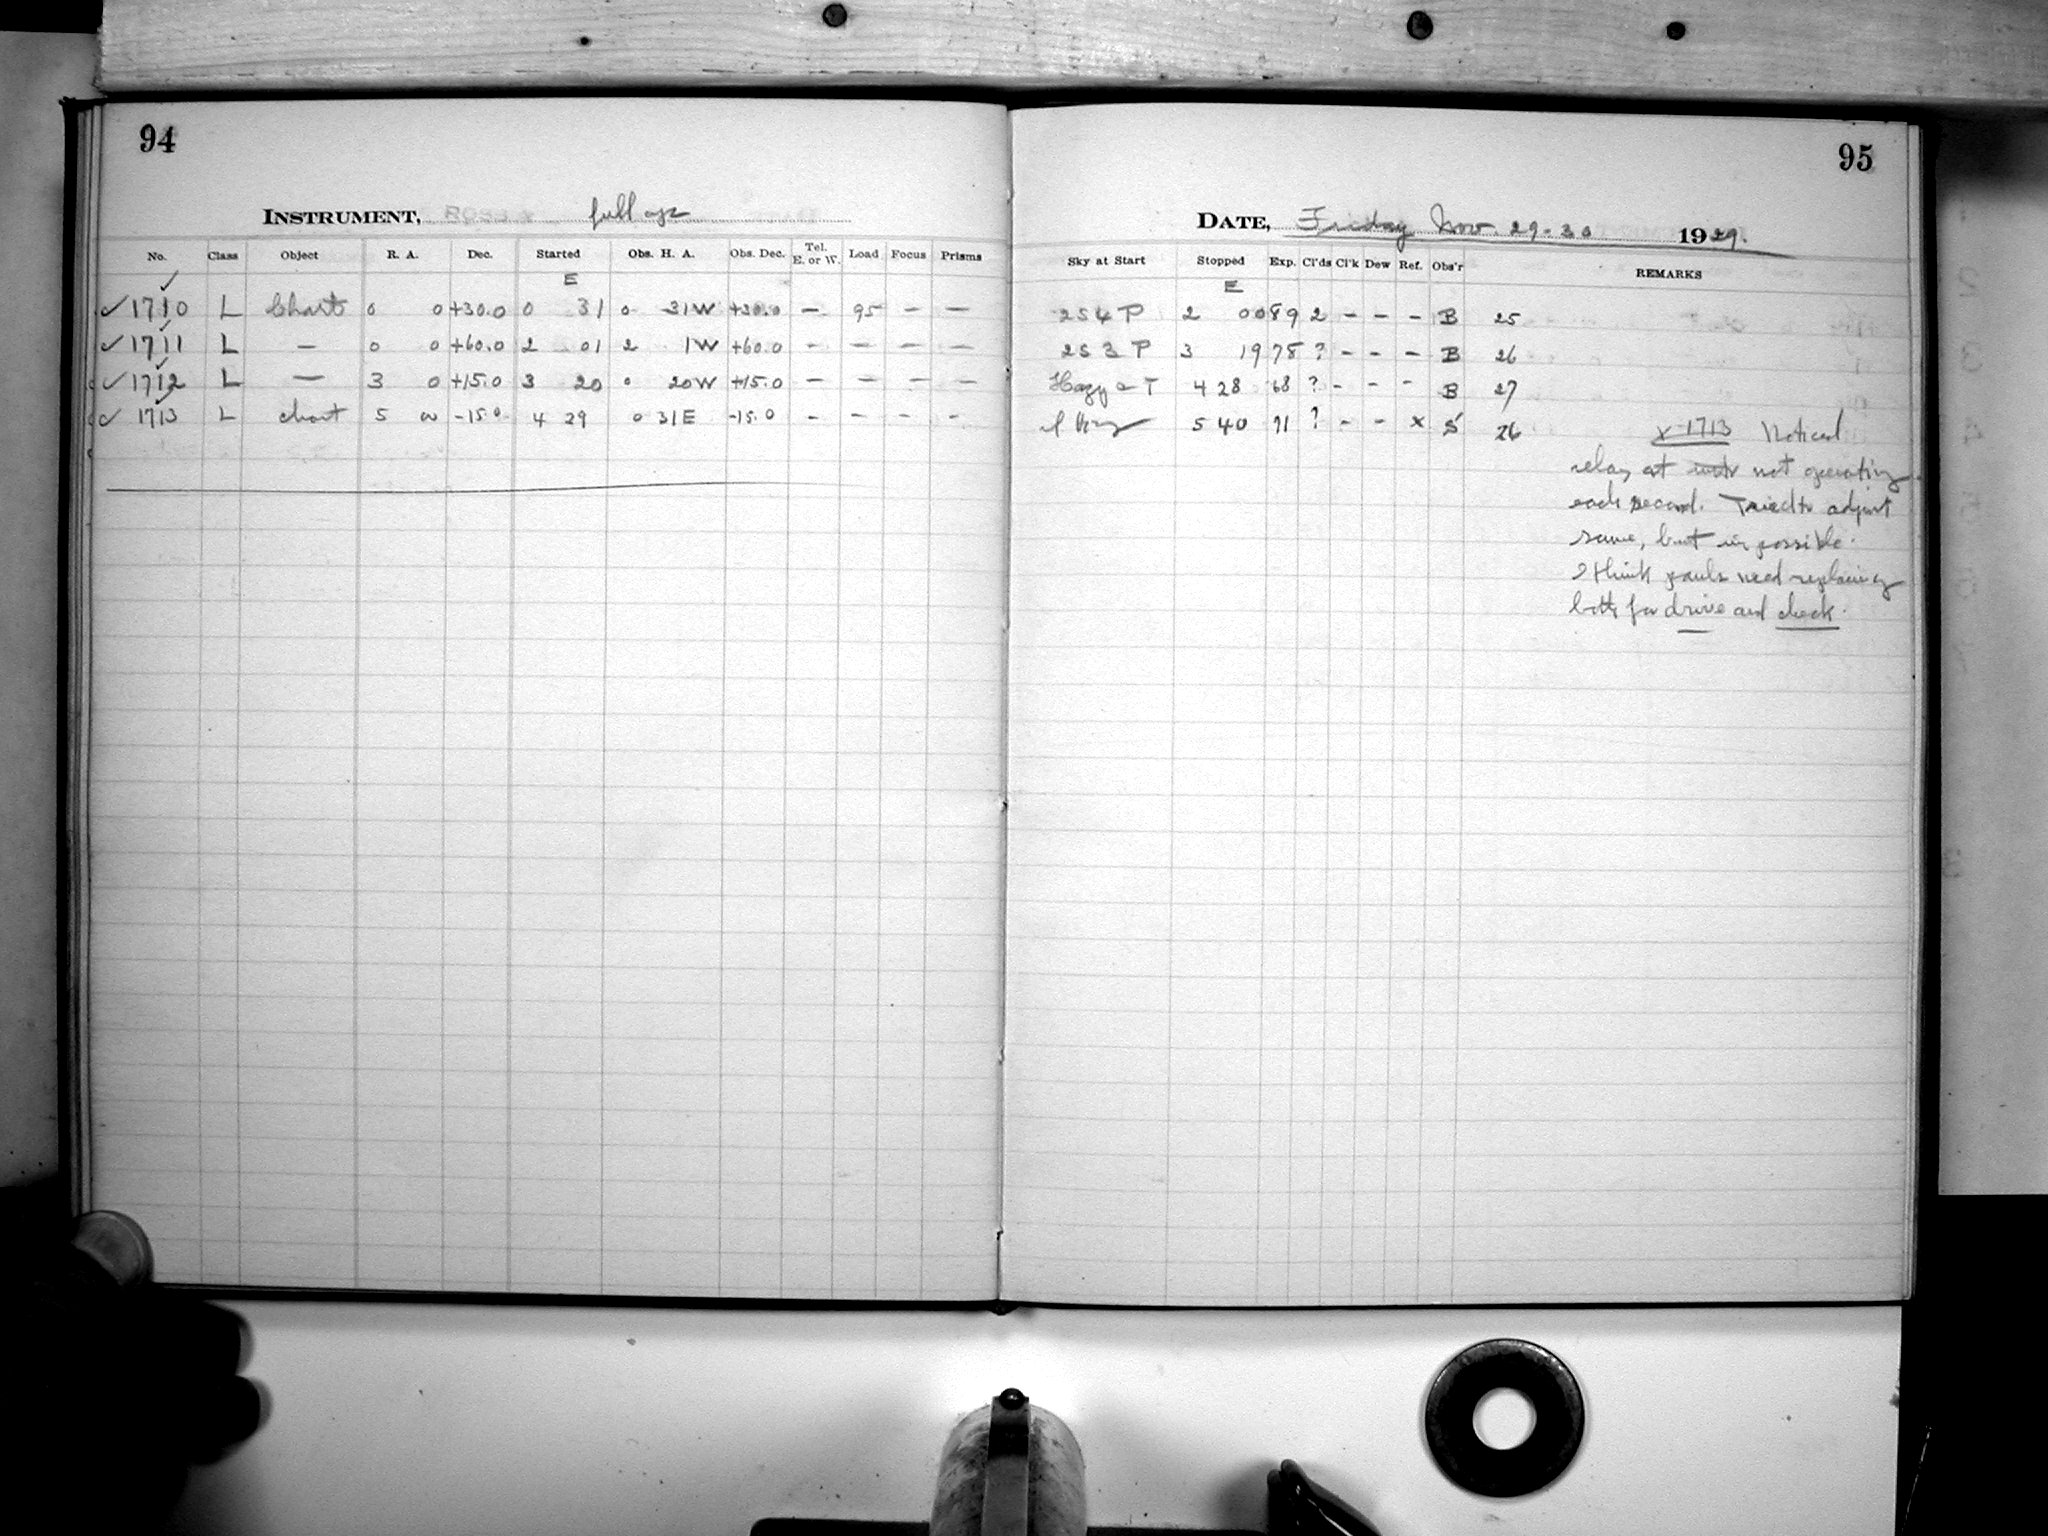 94
INSTRUMENT, full ap
No. Class Object R. A. Dec. Started Obs. H. A. Obs. Dec. Tel. E. or W. Load Focus Prisms
E
✓ 1710 L Chart 0 0 +30.0 0 31 0 31W +30.0 — 95 — —
✓ 1711 L — 0 0 +60.0 2 01 2 1W +60.0 — — — —
✓ 1712 L — 3 0 +15.0 3 20 0 20W +15.0 — — — —
✓ 1713 L chart 5 0 -15.0 4 29 0 31E -15.0 - - - -
95
DATE, Friday Nov. 29-30 1929.
Sky at Start Stopped Exp. Cl'ds Cl'k Dew Ref. Obs'r REMARKS
E
2S4P 2 00 89 2 - - - B 25
2S3P 3 19 78 ? - - - B 26
Hazy 4 28 68 ? - - - B 27
5 40 71 ? - - x S 26
x-1713 Noticed
relay at not operating
each second. Tried to adjust
same, but impossible.
I think pauls need replacing
both for drive and check.